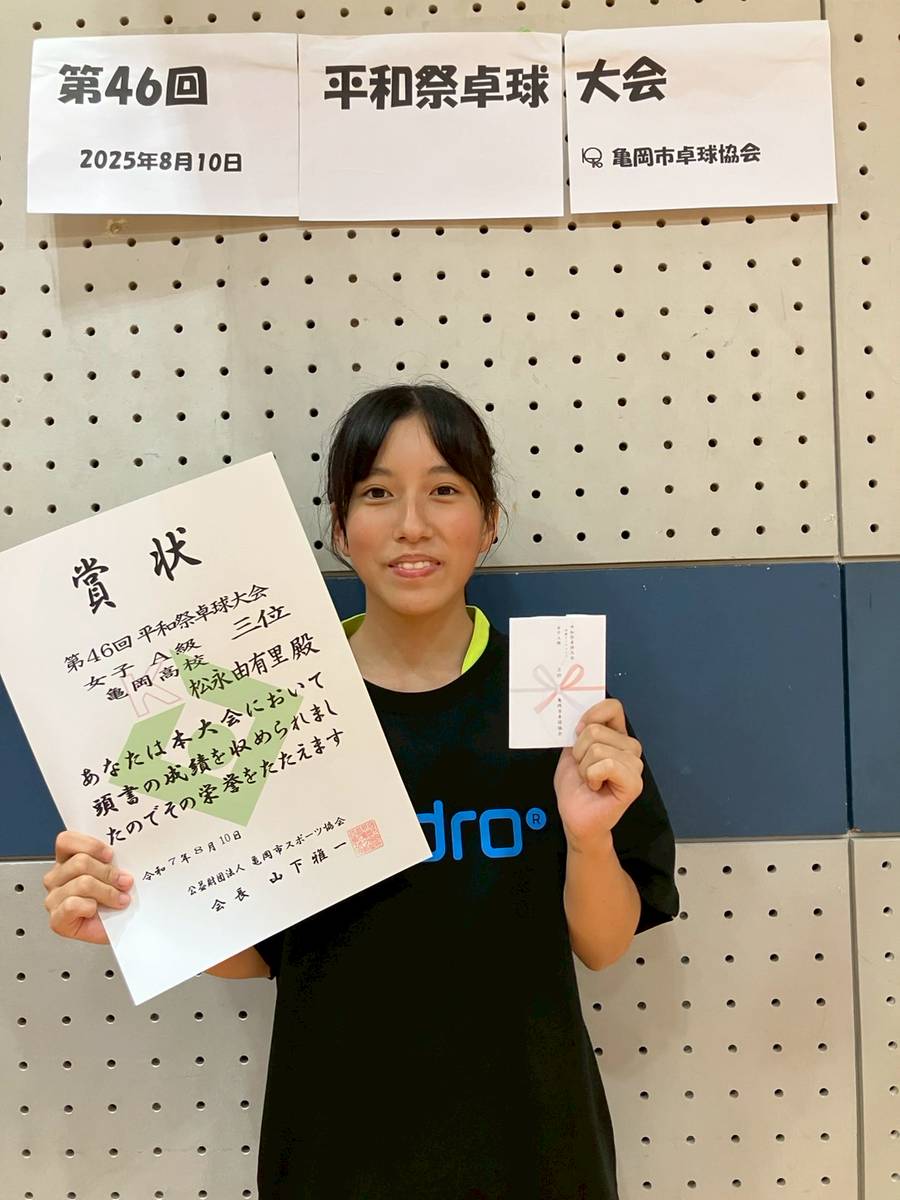 第46回 平和祭卓球 大会
2025年8月10日
亀岡市卓球協会
賞状
第46回 平和祭卓球大会
女子 A級 三位
亀岡高校 松永由有里 殿
あなたは本大会において
頭書の成績を収められまし
たのでその栄誉をたたえます
令和7年8月10日
公益財団法人 亀岡市スポーツ協会
会長 山下雅一
dro®